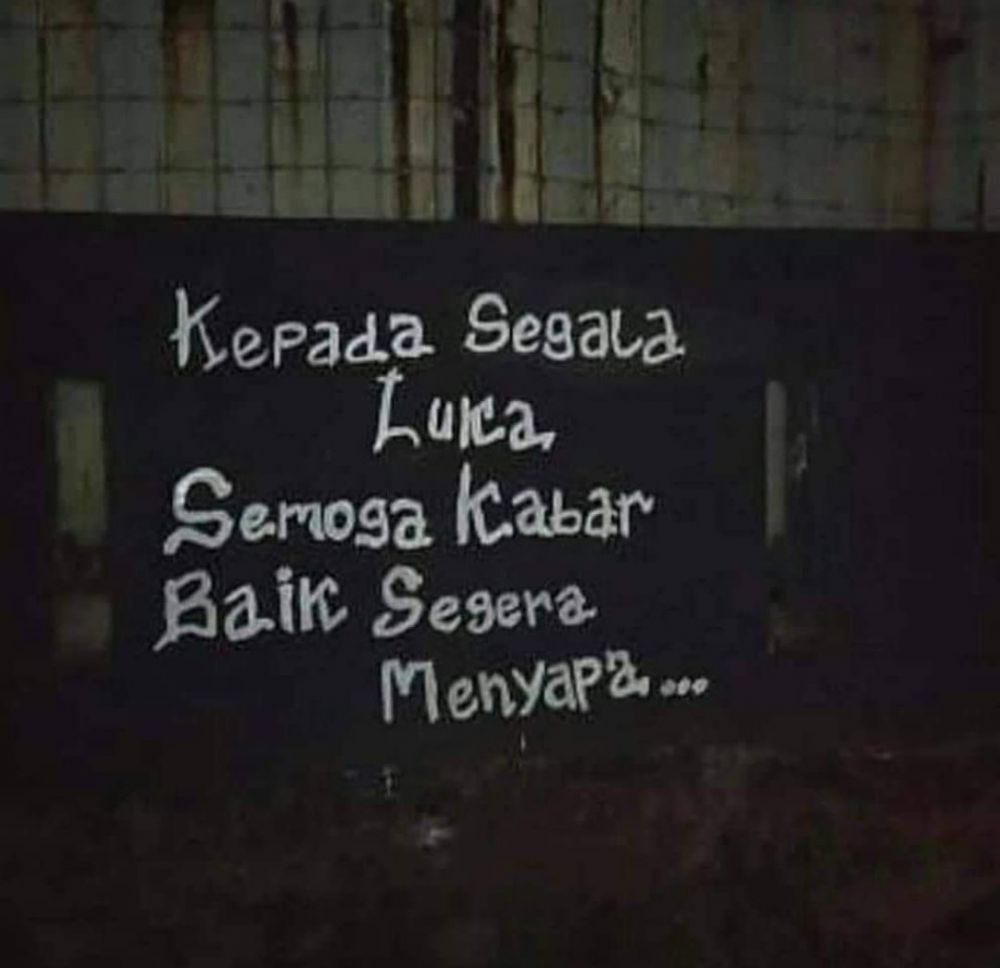 Kepada Segala
Luka,
Semoga Kabar
Baik Segera
Menyapa...